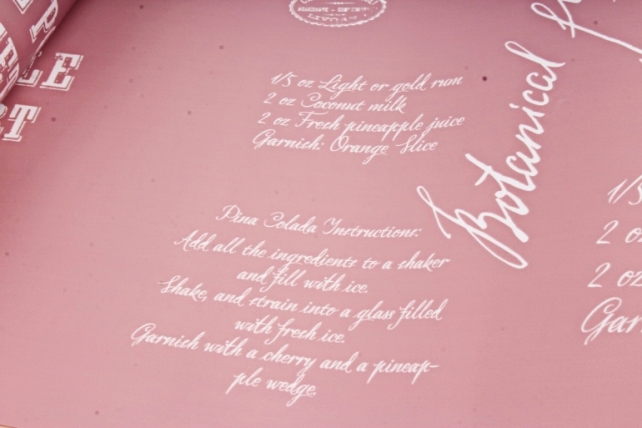 LE
RT
1/5 oz Light or gold rum
2 oz Coconut milk
2 oz Fresh pineapple juice
Garnish: Orange Slice
Botanical
Pina Colada Instructions:
Add all the ingredients to a shaker
and fill with ice.
Shake, and strain into a glass filled
with fresh ice.
Garnish with a cherry and a pineap-
ple wedge.
1/5
2 o
2 oz
Gar